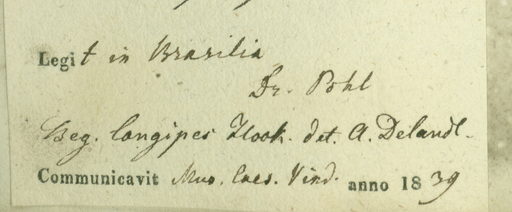 Legit in Brasilia
Dr. Pohl
Beg. longipes Hook. det. A. Decandl.
Communicavit Mus. Caes. Vind. anno 1839